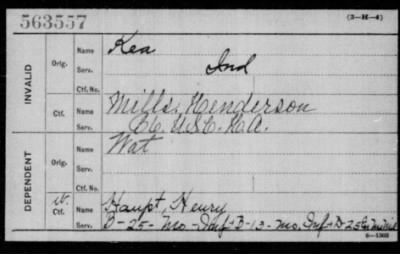 563557 (3-M-4)
INVALID
Orig. Name Kea
Serv. Ind
Ctf. No.
Ctf. Name Mills, Henderson
Serv. U.S.C.H.A.
DEPENDENT
Orig. Name Wat
Serv.
Ctf. No.
W. Ctf. Name Haupt, Henry
B-25-Mo-Inf B-13-Mo. Inf D-25
6-5302